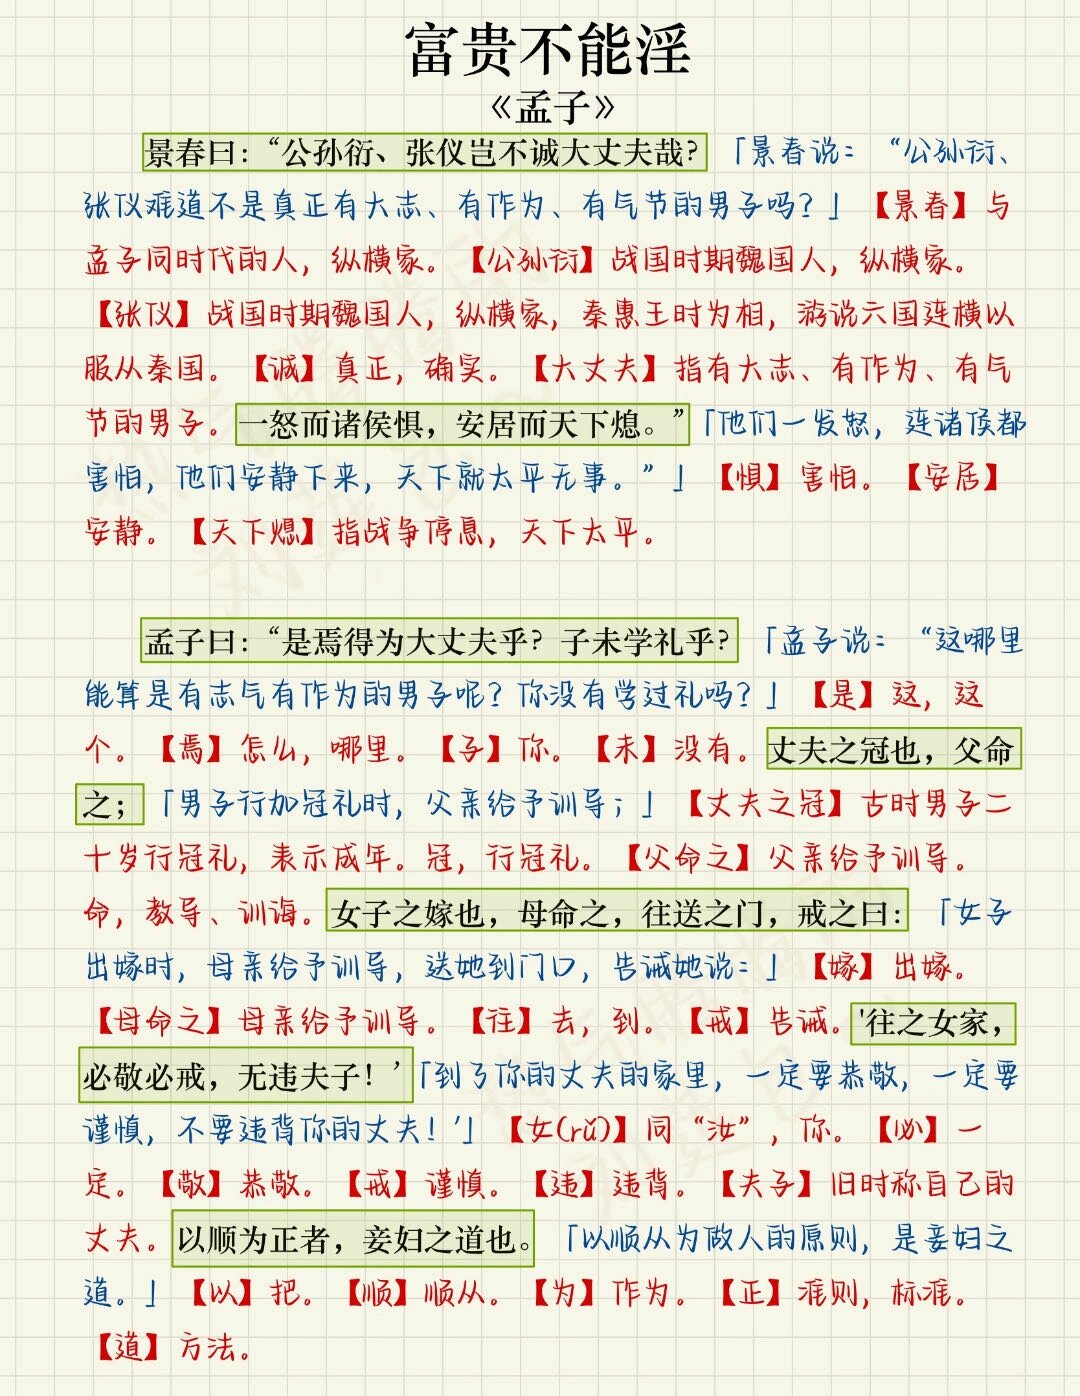 富贵不能淫
《孟子》
景春曰：“公孙衍、张仪岂不诚大丈夫哉？「景春说：“公孙衍、
张仪难道不是真正有大志、有作为、有气节的男子吗？」【景春】与
孟子同时代的人，纵横家。【公孙衍】战国时期魏国人，纵横家。
【张仪】战国时期魏国人，纵横家，秦惠王时为相，游说六国连横以
服从秦国。【诚】真正，确实。【大丈夫】指有大志、有作为、有气
节的男子。一怒而诸侯惧，安居而天下熄。”「他们一发怒，连诸侯都
害怕，他们安静下来，天下就太平无事。”」【惧】害怕。【安居】
安静。【天下熄】指战争停息，天下太平。
孟子曰：“是焉得为大丈夫乎？子未学礼乎？「孟子说：“这哪里
能算是有志气有作为的男子呢？你没有学过礼吗？」【是】这，这
个。【焉】怎么，哪里。【子】你。【未】没有。丈夫之冠也，父命
之；「男子行加冠礼时，父亲给予训导；」【丈夫之冠】古时男子二
十岁行冠礼，表示成年。冠，行冠礼。【父命之】父亲给予训导。
命，教导、训诲。女子之嫁也，母命之，往送之门，戒之曰：「女子
出嫁时，母亲给予训导，送她到门口，告诫她说：」【嫁】出嫁。
【母命之】母亲给予训导。【往】去，到。【戒】告诫。'往之女家，
必敬必戒，无违夫子！’「到了你的丈夫的家里，一定要恭敬，一定要
谨慎，不要违背你的丈夫！’」【女(rǔ)】同“汝”，你。【必】一
定。【敬】恭敬。【戒】谨慎。【违】违背。【夫子】旧时称自己的
丈夫。以顺为正者，妾妇之道也。「以顺从为做人的原则，是妾妇之
道。」【以】把。【顺】顺从。【为】作为。【正】准则，标准。
【道】方法。